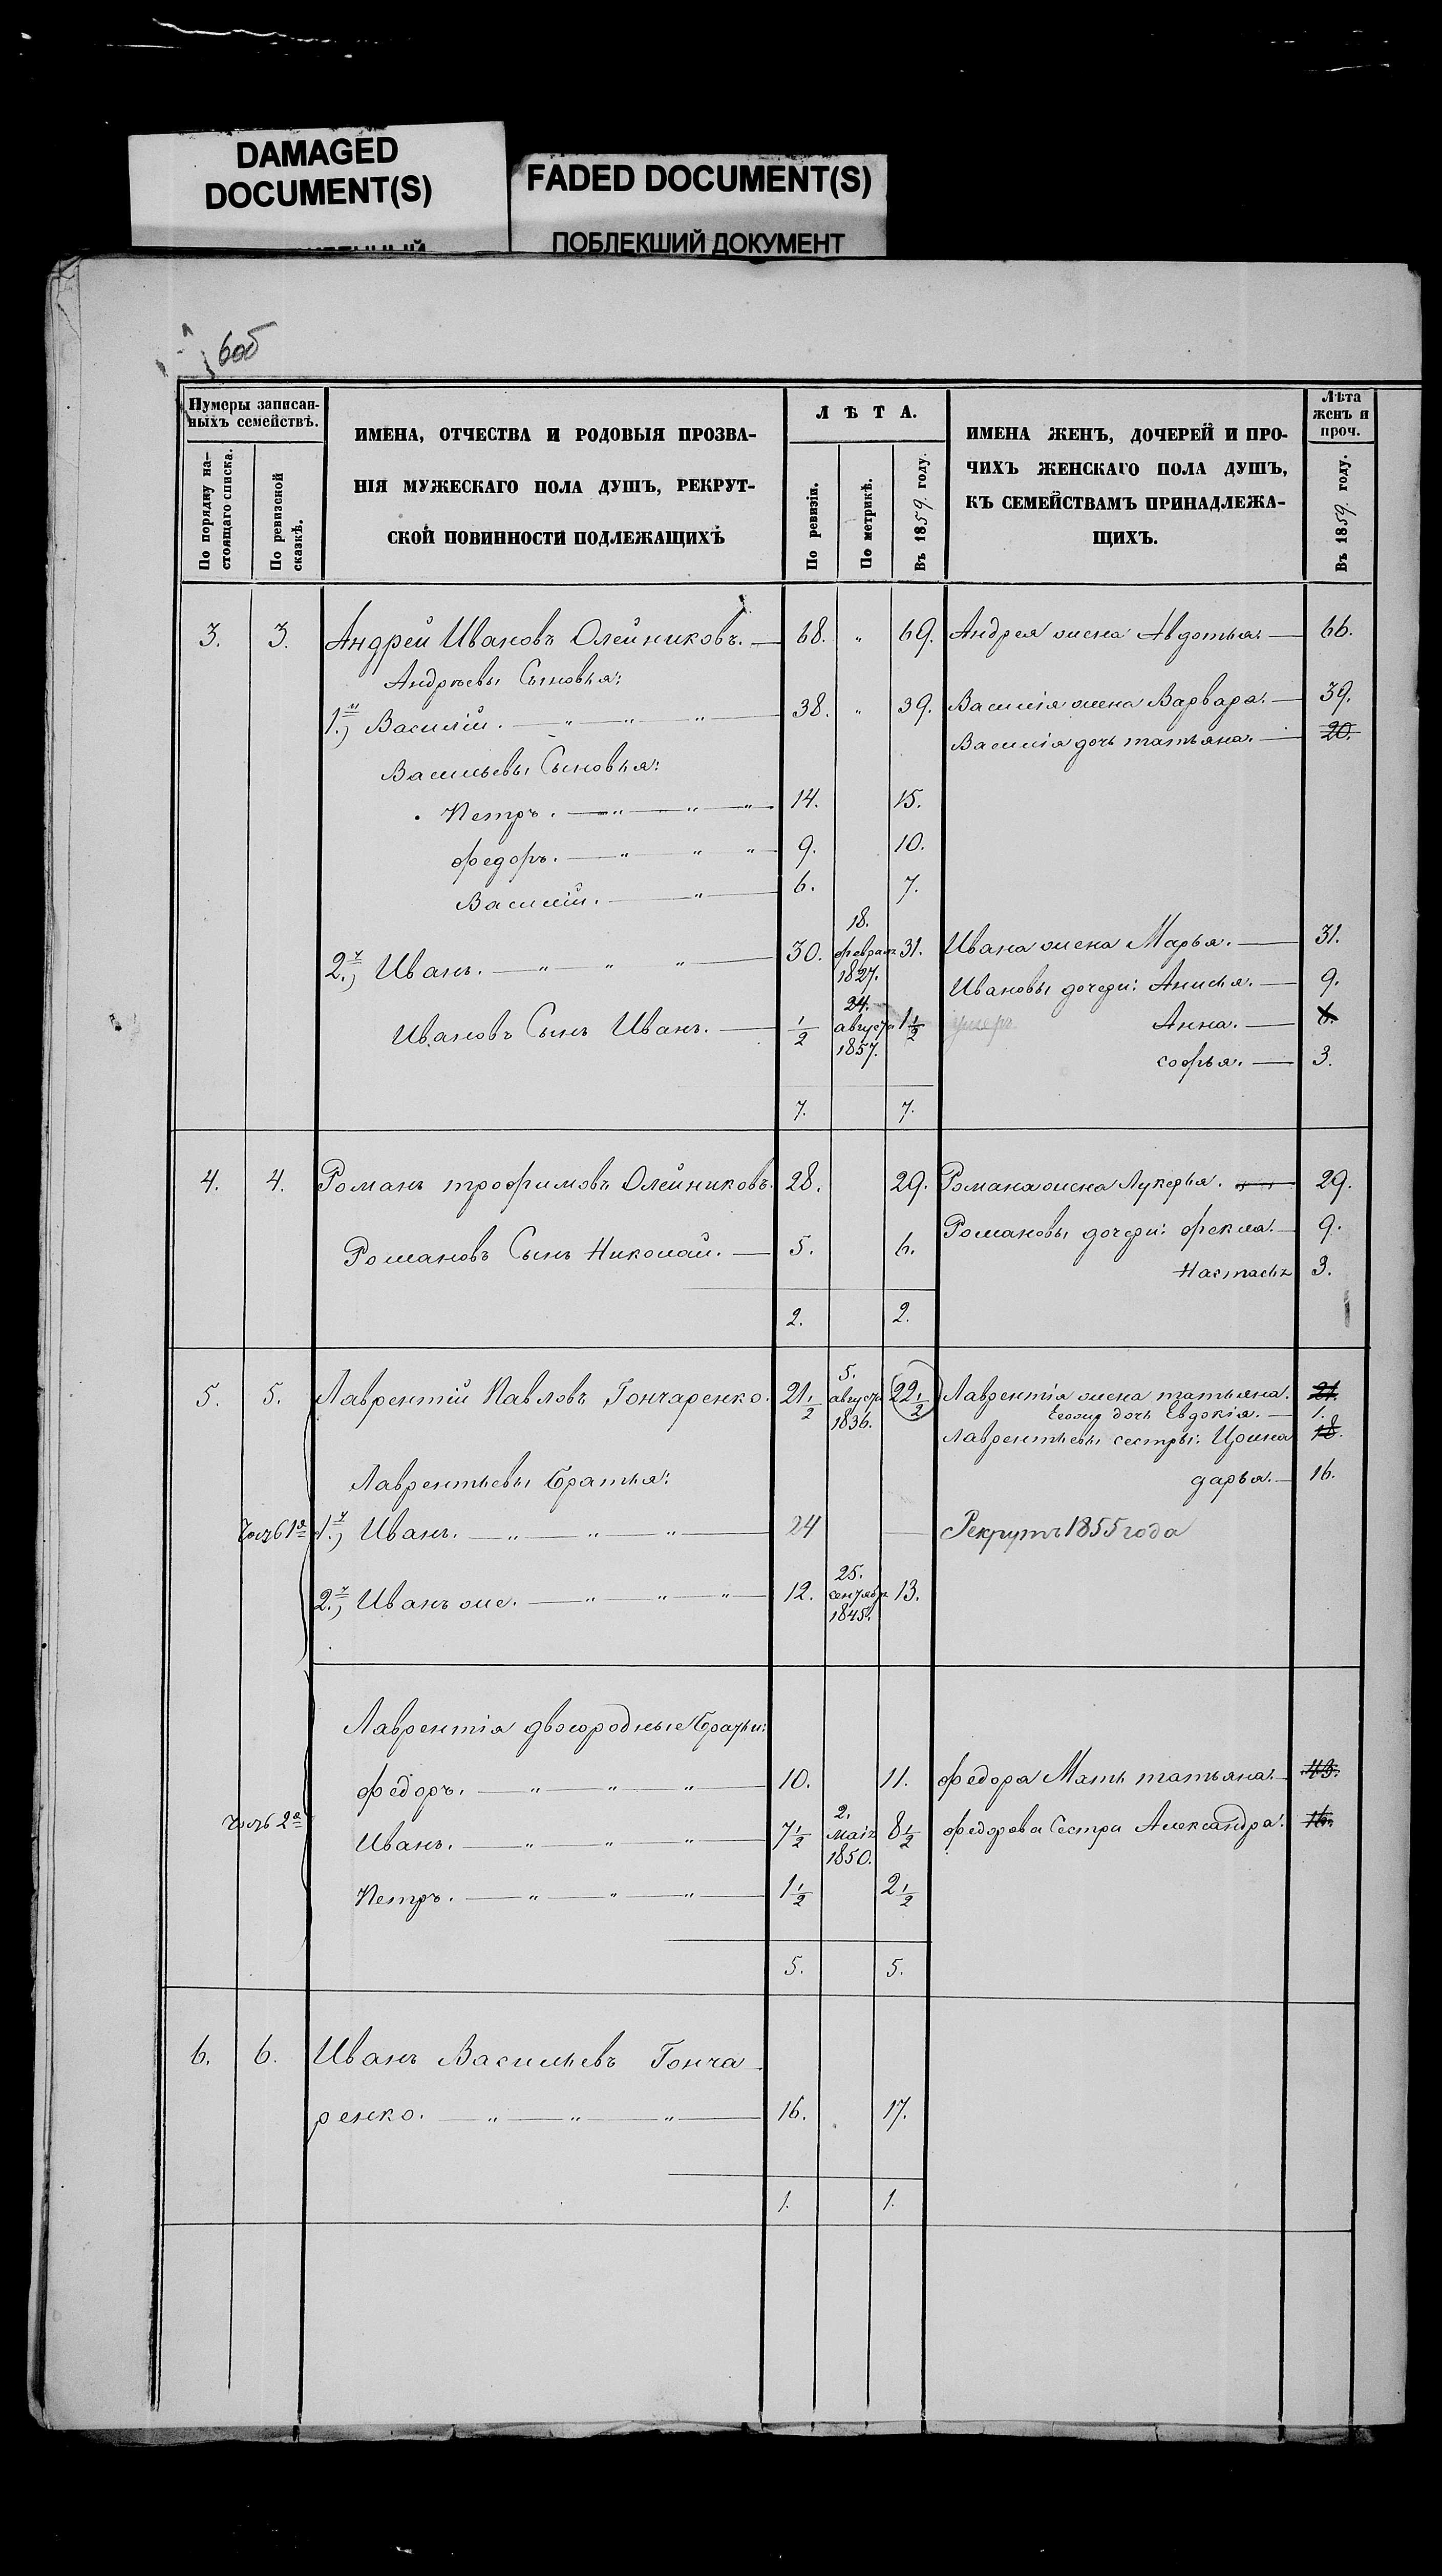 DAMAGED
DOCUMENT(S)
FADED DOCUMENT(S)
ПОБЛЕКШИЙ ДОКУМЕНТ
6об
Нумеры записан-
ныхъ семействъ.
По порядку на-
стоящаго списка.
По ревизской
сказкѣ.
ИМЕНА, ОТЧЕСТВА И РОДОВЫЯ ПРОЗВА-
НІЯ МУЖЕСКАГО ПОЛА ДУШЪ, РЕКРУТ-
СКОЙ ПОВИННОСТИ ПОДЛЕЖАЩИХЪ
ЛѢТА.
По ревизіи.
По метрикѣ.
Въ 1859 году.
ИМЕНА ЖЕНЪ, ДОЧЕРЕЙ И ПРО-
ЧИХЪ ЖЕНСКАГО ПОЛА ДУШЪ,
КЪ СЕМЕЙСТВАМЪ ПРИНАДЛЕЖА-
ЩИХЪ.
Лѣта
женъ и
проч.
Въ 1859 году.
3. 3. Андрей Ивановъ Олейниковъ. — 68. „ 69. Андрея жена Авдотья. — 66.
Андрѣевы Сыновья:
1.й) Василій. — „ „ „ — 38. „ 39. Василія жена Варвара. — 39.
Василія дочь татьяна. — 20.
Васильевы Сыновья:
Петръ. — „ — „ — „ 14. 15.
федоръ. — „ „ „ — 9. 10.
Василій. — „ — 6. 7.
2.й) Иванъ. — „ „ „ — 30. 18. февраля 1827. 31. Ивана жена Марья. — 31.
Ивановы дочери: Анисья. — 9.
Ивановъ Сынъ Иванъ. — 1/2 24. августа 1857. 1 1/2 умерла Анна. — 6.
софья. — 3.
7. 7.
4. 4. Романъ трофимовъ Олейниковъ. 28. 29. Романа жена Лукерья. — 29.
Романовы дочери: фекла. — 9.
Романовъ Сынъ Николай. — 5. 6.
Настасья 3.
2. 2.
5. 5. Лаврентій Павловъ Гончаренко. 21 1/2 5. августа 1836. 22 1/2 Лаврентія жена татьяна. 21.
Егожъ дочь Евдокія. — 1.
Лаврентьевы сестры: Ирина 18.
дарья. — 16.
Лаврентьевы Братья:
Часть 1я 1.й) Иванъ. — „ — „ — „ — 24 — Рекрутъ 1855 года
2.й) Иванъ же. — „ — „ — „ — 12. 25. сентября 1845. 13.
Лаврентія двоюродные Братьи:
федоръ. — „ — „ — „ — 10. 11. федора Мать татьяна. — 43.
Часть 2я
Иванъ. — „ — „ — „ — 7 1/2 2. Маія 1850. 8 1/2 федорова Сестра Александра. 16.
Петръ. — „ — „ — „ — 1 1/2 2 1/2
5. 5.
6. 6. Иванъ Васильевъ Гонча
ренко. — „ — „ — „ — 16. 17.
1. 1.